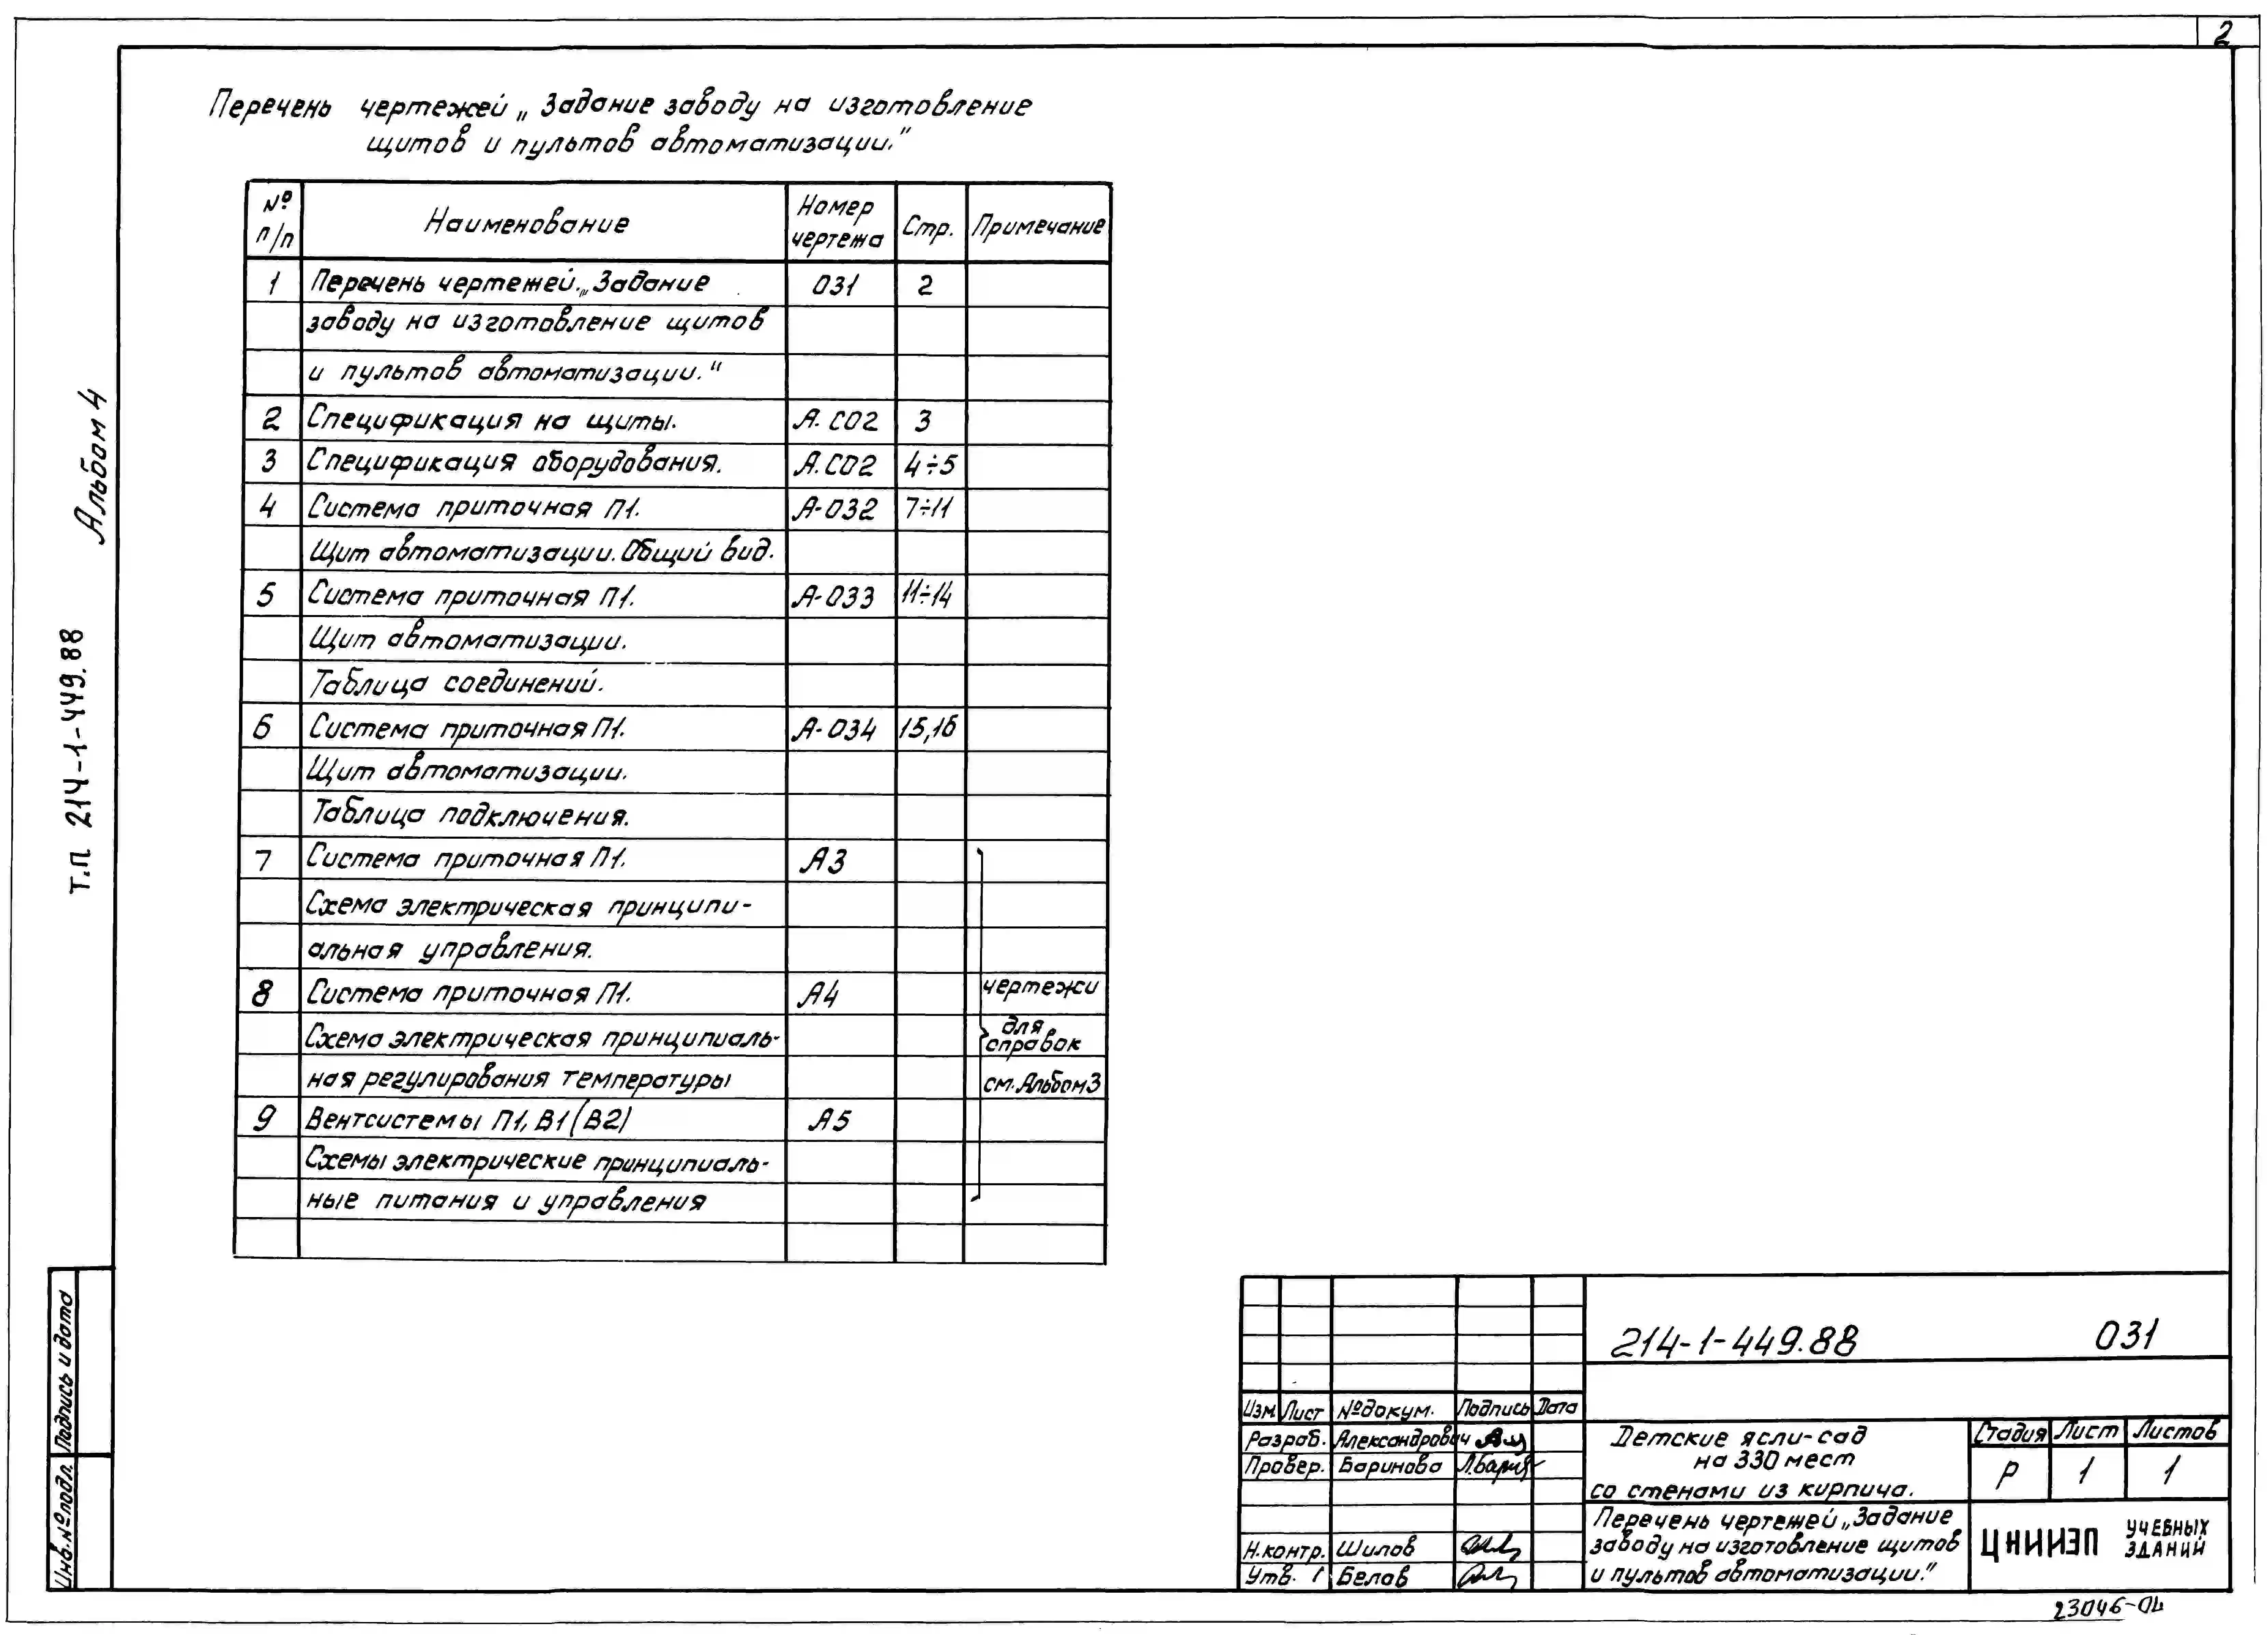 2
Перечень чертежей „Задание заводу на изготовление
щитов и пультов автоматизации."
№ п/п Наименование Номер чертежа Стр. Примечание
1 Перечень чертежей „Задание 031 2
заводу на изготовление щитов
и пультов автоматизации."
2 Спецификация на щиты. А.СО2 3
3 Спецификация оборудования. А.СО2 4÷5
4 Система приточная П1. А-032 7÷11
Щит автоматизации. Общий вид.
5 Система приточная П1. А-033 11÷14
Щит автоматизации.
Таблица соединений.
6 Система приточная П1. А-034 15,16
Щит автоматизации.
Таблица подключения.
7 Система приточная П1. А3
Схема электрическая принципи-
альная управления.
8 Система приточная П1. А4 чертежи
Схема электрическая принципиаль- для справок
ная регулирования температуры см. Альбом 3
9 Вентсистемы П1, В1 (В2) А5
Схемы электрические принципиаль-
ные питания и управления
Альбом 4
т.п 214-1-449.88
Подпись и дата
Инв. № подл.
214-1-449.88 031
Изм Лист № докум. Подпись Дата
Разраб. Александрович
Провер. Баринова Л.Барин
Н.контр. Шилов
Утв. Белов
Детские ясли-сад
на 330 мест
со стенами из кирпича.
Стадия Лист Листов
Р 1 1
Перечень чертежей „Задание
заводу на изготовление щитов
и пультов автоматизации."
ЦНИИЭП УЧЕБНЫХ ЗДАНИЙ
23046-04